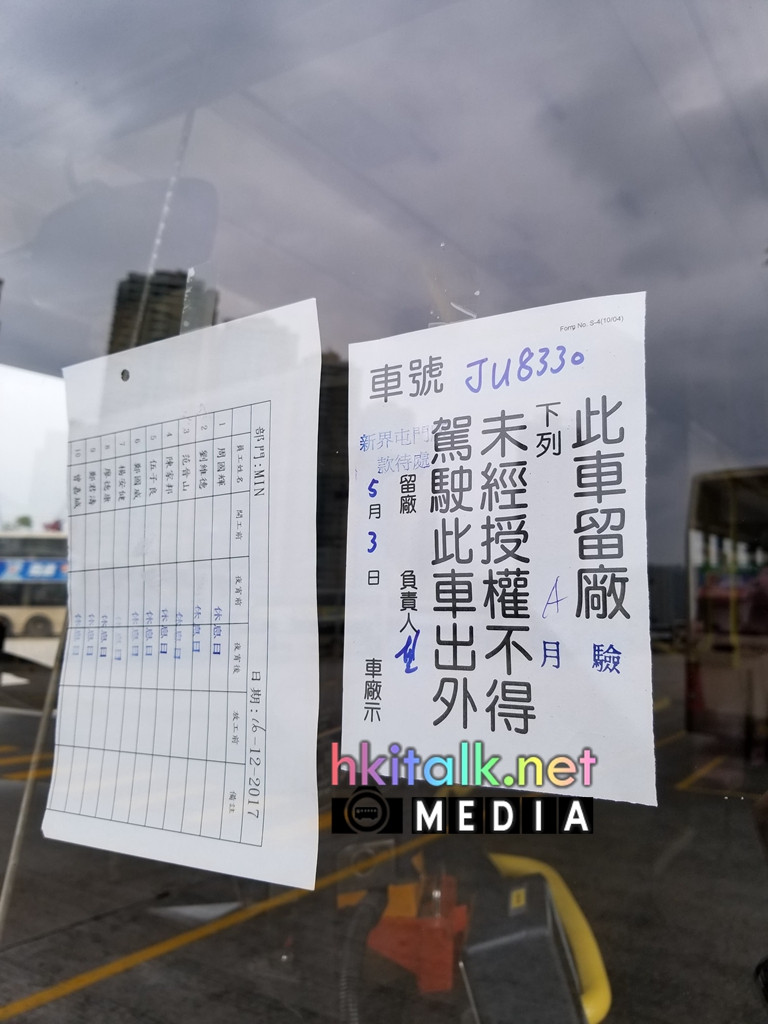 Form No. S-4(10/04)
車號 JU8330
此車留廠 驗
下列 A月
未經授權不得
駕駛此車出外
留廠 負責人
新界屯門
款待處
5月3日
車廠示
部門:MIN 日期:16-12-2017
員工姓名 開工前 夜宵前 夜宵後 放工前 備註
1 周國輝 休息日
2 劉維德 休息日
3 范晉山 休息日
4 陳家邦 休息日
5 伍子良 休息日
6 鄭國威 休息日
7 楊安健 休息日
8 廖德康 休息日
9 鄭君濤 休息日
10 曾嘉城 休息日
hkitalk.net
MEDIA